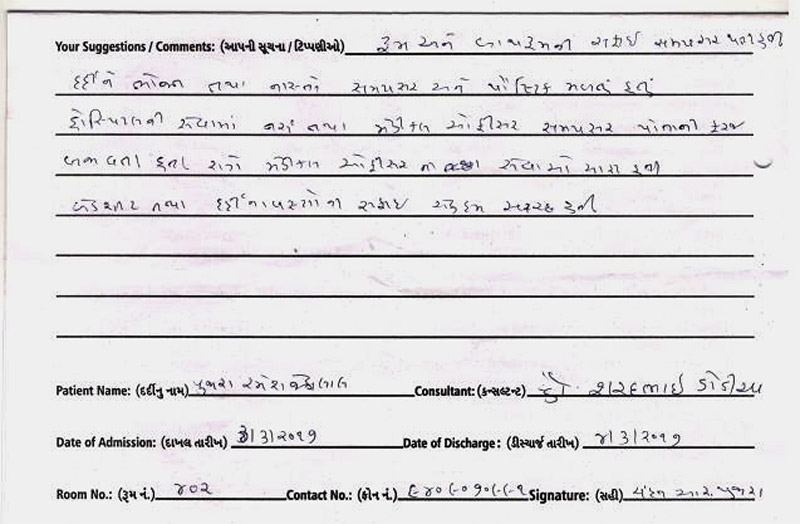 Your Suggestions / Comments: (આપની સૂચના / ટિપ્પણીઓ) રૂમ અને બાથરૂમની સફાઈ સમયસર થતી હતી
દર્દીને ભોજન તથા નાસ્તો સમયસર અને પૌષ્ટિક મળતું હતું
હોસ્પિટલની સેવામાં નર્સ તથા મેડીકલ ઓફીસર સમયસર પોતાની ફરજ
બજાવતા હતા રાત્રે મેડીકલ ઓફીસર ની સેવાઓ સારી હતી
બેડશીટ તથા દર્દીના વસ્ત્રોની સફાઈ એકદમ સરસ હતી
Patient Name: (દર્દીનું નામ) પુજારા રમેશ
Consultant: (કન્સલ્ટન્ટ) ડૉ. શરદભાઈ
Date of Admission: (દાખલ તારીખ) 3/3/૨૦૧૭ Date of Discharge: (ડીસ્ચાર્જ તારીખ) ૪/3/૨૦૧૭
Room No.: (રૂમ નં.) ૪૦૨ Contact No.: (ફોન નં.) Signature: (સહી) આર. પુજારા